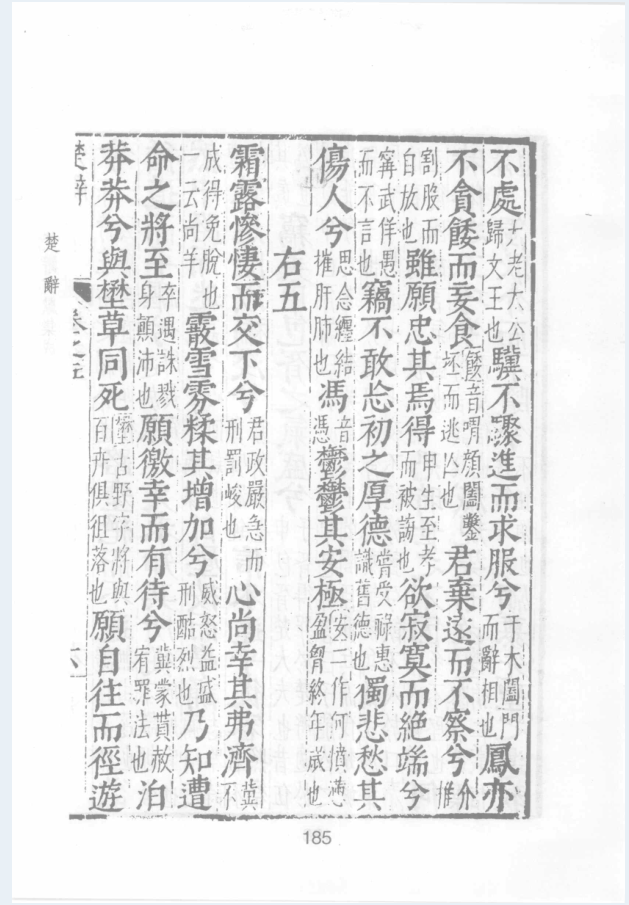 不處太老太公歸文王也驥不驟進而求服兮干木闔門而辭相也鳳亦
不貪餧而妄食餧音喂顔闔鑿坯而逃亾也君棄逺而不察兮介推
割股而自放也雖願忠其焉得申生至孝而被謗也欲寂寞而絕端兮
甯武佯愚而不言也竊不敢忘初之厚德甞受祿惠識舊德也獨悲愁其
傷人兮思念纏結摧肝肺也馮鬱鬱其安極音憑安一作何憤懣盈胷終年歲也
右五
霜露慘悽而交下兮君政嚴急而刑罰峻也心尚幸其弗濟冀不
成得免脫也一云尚羊霰雪雰糅其增加兮威怒益盛刑酷烈也乃知遭
命之將至卒遇誅戮身顛沛也願徼幸而有待兮冀蒙貰赦宥罪法也泊
莽莽兮與壄草同死壄古野字將與百卉俱徂落也願自往而徑遊
楚辭
卷之五
六
楚辭
185